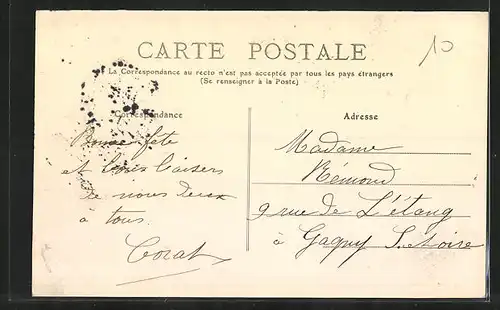 CARTE POSTALE
10
La Correspondance au recto n'est pas acceptée par tous les pays étrangers
(Se renseigner à la Poste)
Correspondance
Adresse
Bonne fête
et bons baisers
de nous deux
à tous.
Corat
Madame
Rémond
9 rue de L'étang
à Gagny S. et oise